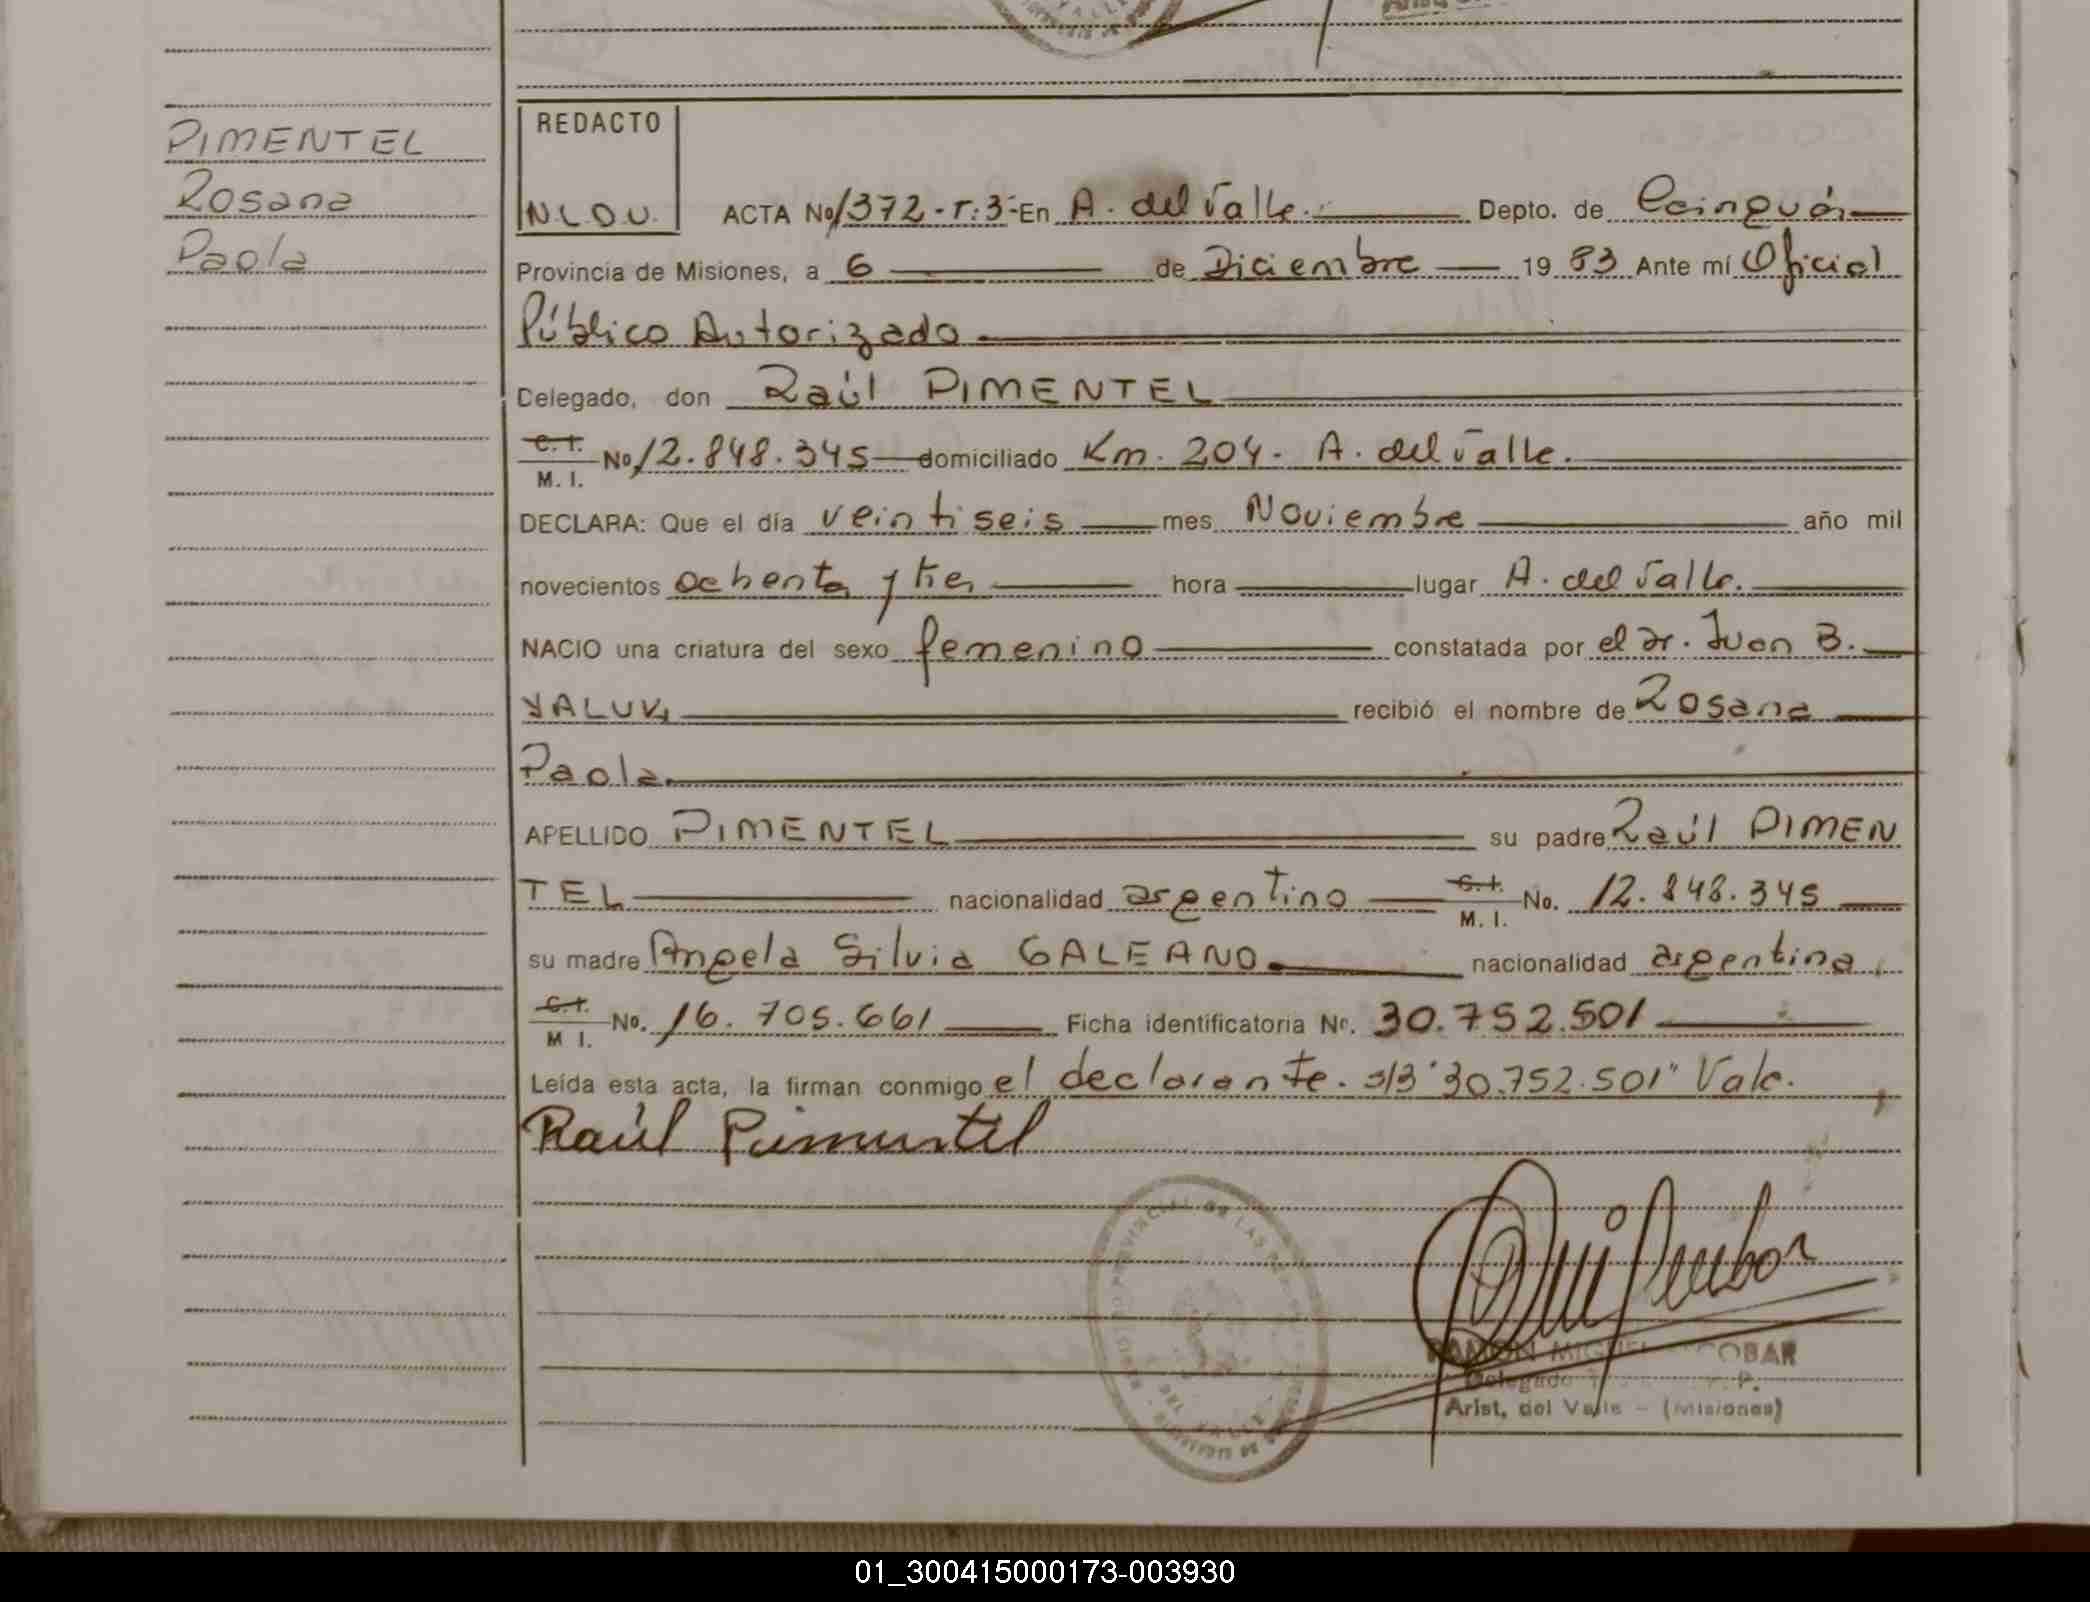 PIMENTEL
Rosana
Paola
REDACTO
N.L.D.V.
ACTA No 1372 - T: 3 - En A. del Valle. Depto. de Cainguás
Provincia de Misiones, a 6 de Diciembre 19 83 Ante mí Oficial
Público Autorizado
Delegado, don Raúl PIMENTEL
C. I.
M. I. No 12.848.345 domiciliado Km. 204. A. del Valle.
DECLARA: Que el día veintiseis mes Noviembre año mil
novecientos ochenta y tres hora lugar A. del Valle.
NACIO una criatura del sexo femenino constatada por el Dr. Juan B.
YALUK, recibió el nombre de Rosana
Paola.
APELLIDO PIMENTEL su padre Raúl PIMEN
TEL nacionalidad argentino C. I.
M. I. No. 12.848.345
su madre Angela Silvia GALEANO. nacionalidad argentina,
C. I.
M I. No. 16.705.661 Ficha identificatoria No. 30.752.501
Leída esta acta, la firman conmigo el declarante. s/B "30.752.501" Vale.
Raúl Pimentel
RAMON MIGUEL ESCOBAR
Delegado
Arist. del Valle - (Misiones)
01_300415000173-003930